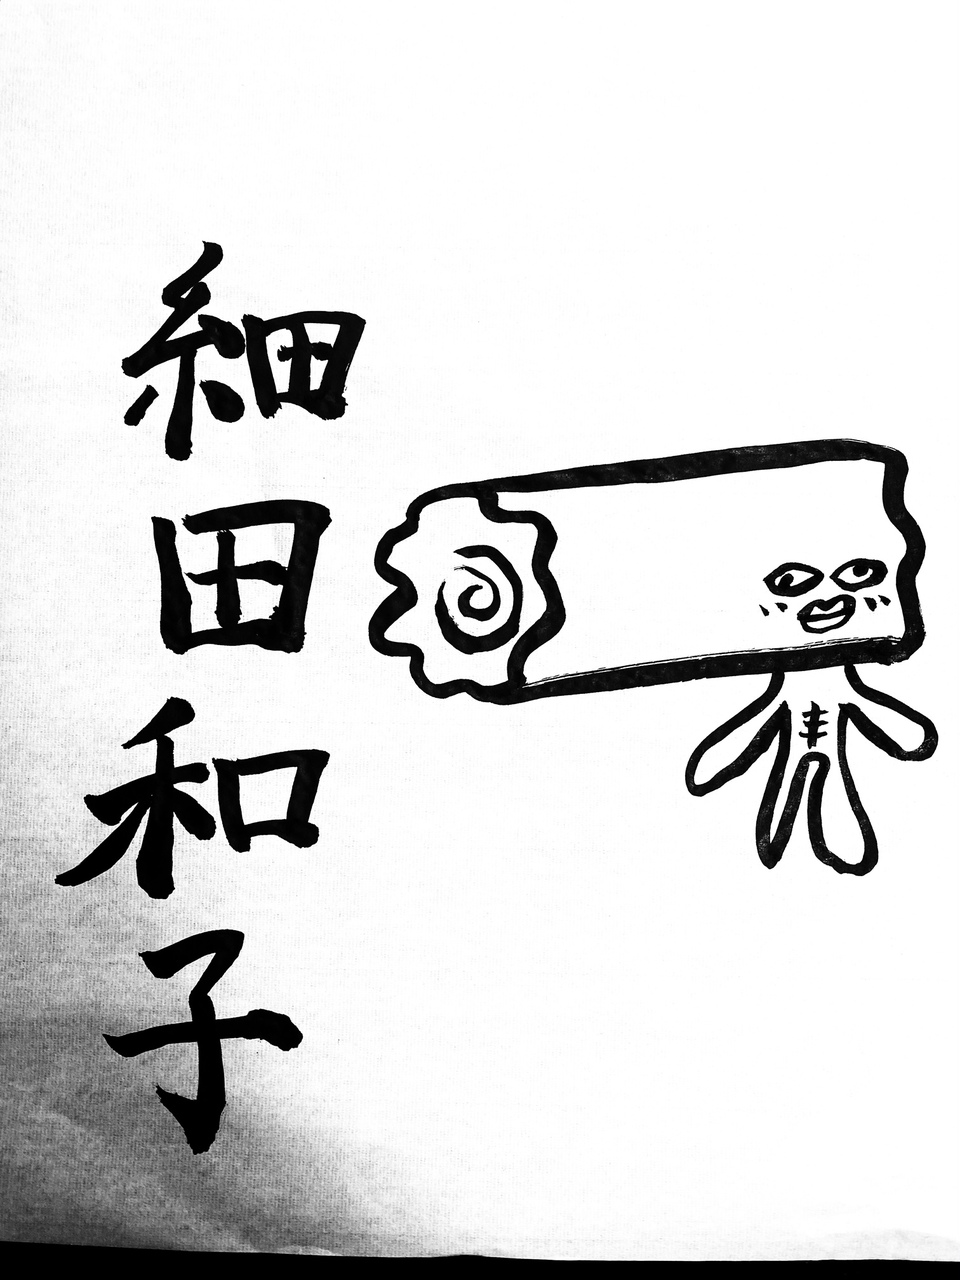 細田和子